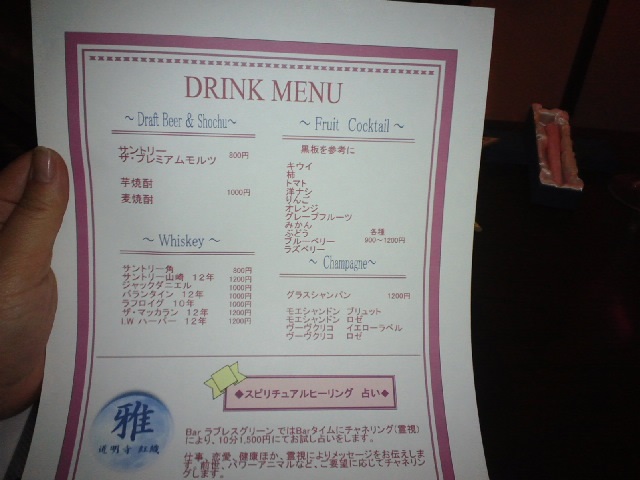 DRINK MENU
～Draft Beer & Shochu～
サントリー
ザ・プレミアムモルツ 800円
芋焼酎
麦焼酎 1000円
～ Whiskey ～
サントリー角 800円
サントリー山崎 12年 1200円
ジャックダニエル 1000円
バランタイン 12年 1000円
ラフロイグ 10年 1000円
ザ・マッカラン 12年 1200円
I.W ハーパー 12年 1200円
～ Fruit Cocktail ～
黒板を参考に
キウイ
柿
トマト
洋ナシ
りんご
オレンジ
グレープフルーツ
みかん
ぶどう 各種
ブルーベリー 900～1200円
ラズベリー
～ Champagne～
グラスシャンパン 1200円
モエシャンドン ブリュット
モエシャンドン ロゼ
ヴーヴクリコ イエローラベル
ヴーヴクリコ ロゼ
◆スピリチュアルヒーリング 占い◆
雅
Bar ラブレスグリーン ではBarタイムにチャネリング(霊視)
により、10分1,500円にてお試し占いをします。
仕事、恋愛、健康ほか、霊視によりメッセージをお伝えしま
す。前世、パワーアニマルなど、ご要望に応じてチャネリン
グします。